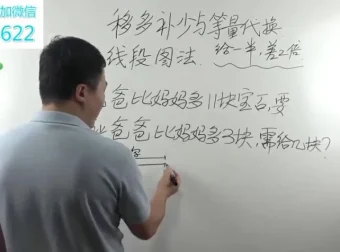 加微信
622
移多补少与等量代换
线段图法.
给一半,差2倍
爸比妈妈多11块宝石,要
爸爸比妈妈多3块,需给几块?